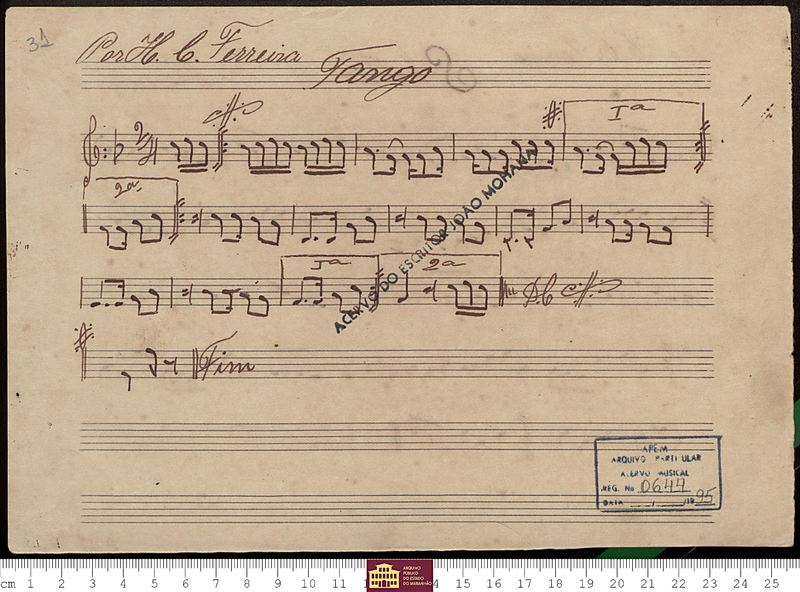 31
Por H. C. Ferreira
Tango
2/4
Iª
2ª
ACERVO DO ESCRITOR JOÃO MOHANA
Iª
2ª
DC
Fim
APEM
ARQUIVO PARTI ULAR
ACERVO MUSICAL
REG. No 0644
DATA / /19 95
cm 1 2 3 4 5 6 7 8 9 10 11 14 15 16 17 18 19 20 21 22 23 24 25
ARQUIVO
PÚBLICO
DO ESTADO
DO MARANHÃO